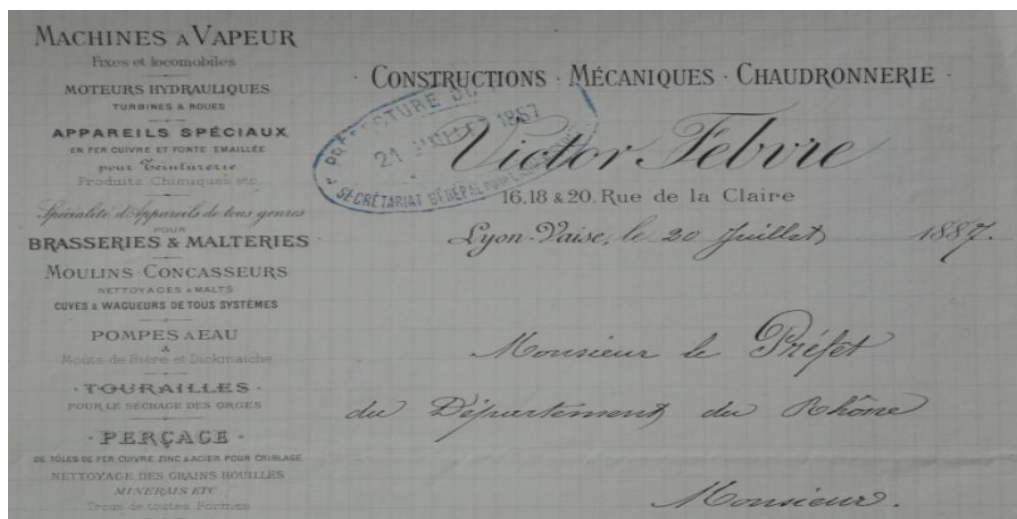 MACHINES A VAPEUR
Fixes et locomobiles
MOTEURS HYDRAULIQUES
TURBINES & ROUES
APPAREILS SPÉCIAUX
EN FER CUIVRE ET FONTE EMAILLÉE
pour Teinturerie
Produits Chimiques etc.
Spécialité d'Appareils de tous genres
POUR
BRASSERIES & MALTERIES
MOULINS · CONCASSEURS
NETTOYAGES A MALTS
CUVES & WAGUEURS DE TOUS SYSTÈMES
POMPES A EAU
&
Moûts de Bière et Dickmaiche
· TOURAILLES ·
POUR LE SÉCHAGE DES ORGES
· PERÇAGE ·
DE TÔLES DE FER CUIVRE, ZINC & ACIER POUR CRIBLAGE
NETTOYAGE DES GRAINS HOUILLES
MINERAIS ETC
Trous de toutes Formes
· CONSTRUCTIONS · MÉCANIQUES · CHAUDRONNERIE ·
PRÉFECTURE DU
21 JUILLET 1887
SECRÉTARIAT GÉNÉRAL POUR
Victor Febvre
16, 18 & 20. Rue de la Claire
Lyon-Vaise, le 20 Juillet 1887.
Monsieur le Préfet
du Département du Rhône
Monsieur.